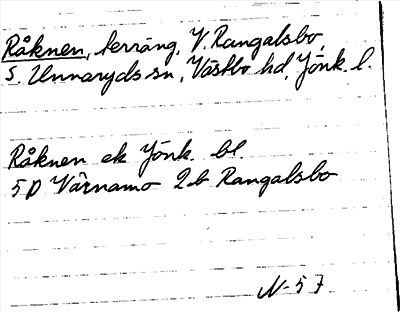 Råknen, terräng, V. Rangalsbo,
S. Unnaryds sn, Västbo hd, Jönk. l.
Råknen ek Jönk. bl.
5D Värnamo 2b Rangalsbo
N-57